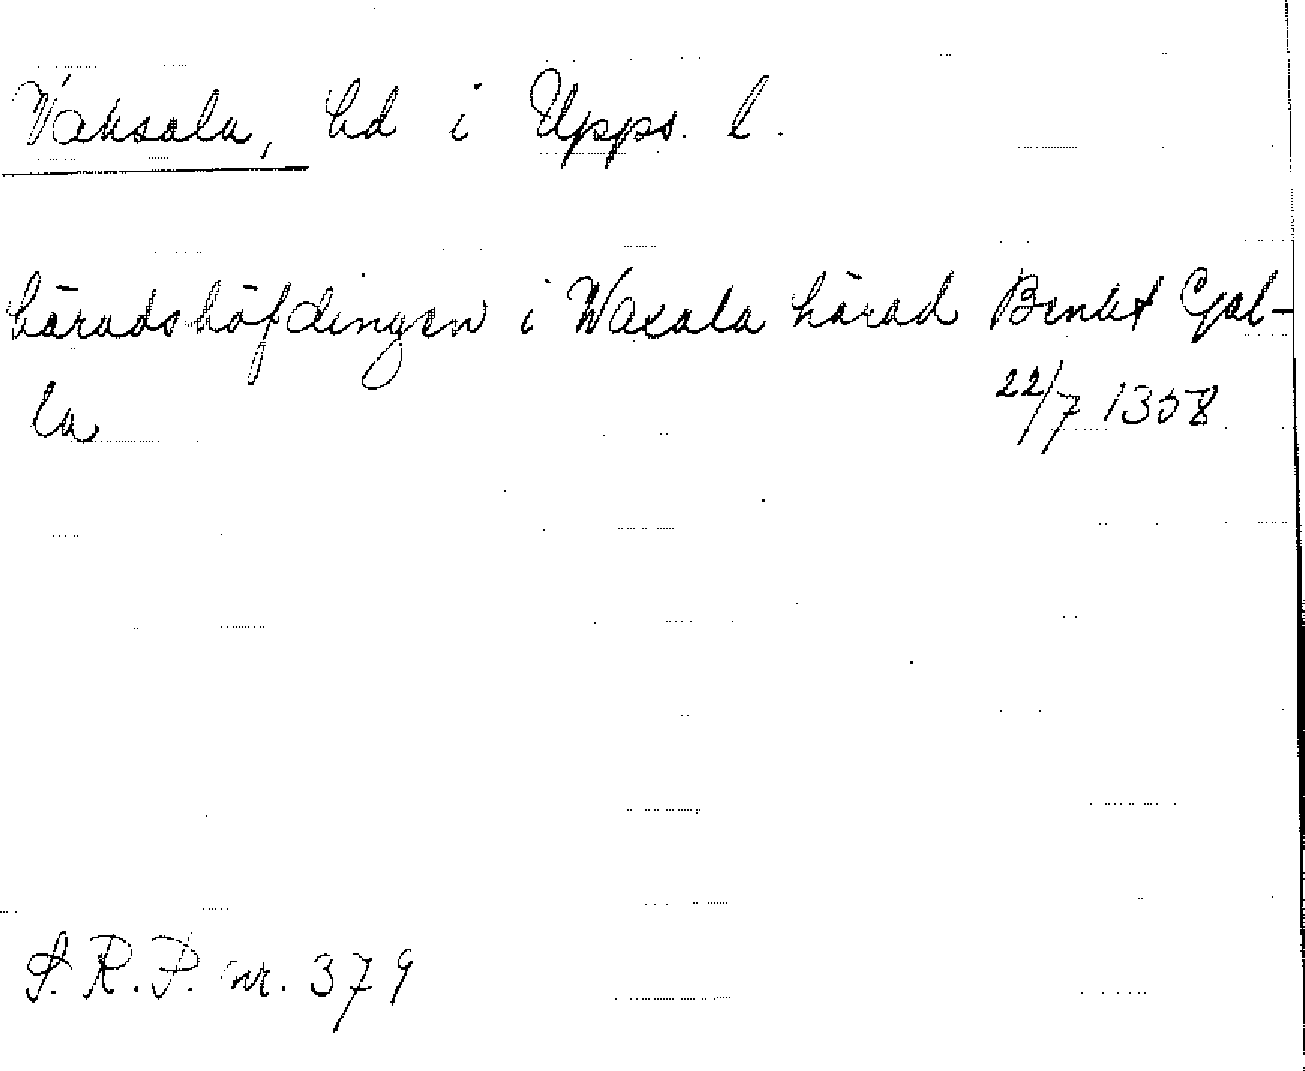 Vaksala, hd i Upps. l.
häradshöfdingen i Waxala härad Benkt Gyal-
la
22/7 1358
S. R. P. nr. 379